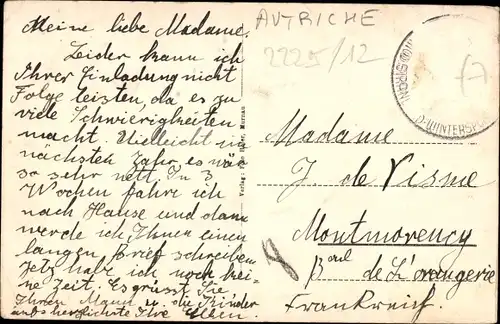 Meine liebe Madame.
Leider kann ich
Ihrer Einladung nicht
Folge leisten, da es zu
viele Schwierigkeiten
macht. Vielleicht im
nächsten Jahr, es wär
so sehr nett. In 3
Wochen fahre ich
nach Hause und dann
werde ich Ihnen einen
langen Brief schreiben
Jetz hab ich noch kei-
ne Zeit. Es grüsst Sie
Ihren Mann u. die Kinder
aufs herzlichste Ihre
AUTRICHE
2225/12
Verlag: Murnau
WINTERSPO
Madame
J. de Visme
Montmorency
8
Boul de L'orangerie
Frankreich.